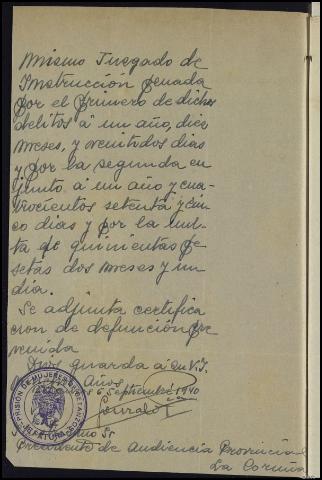 mismo Juzgado de
Instrucción penada
por el primero de dichos
delitos a un año, diez
meses, y veintidos dias
y por la segunda en
junto a un año y cua-
trocientos setenta y cin
co dias y por la mul-
ta de quinientas pe
setas dos meses y un
dia.
Se adjunta certifica
cion de defunción pre
venida
Dios guarda a V.I.
Años
6 Septiembre 1940
PRISIÓN DE MUJERES BETANZOS
JEFATURA
mo Sr
Presidente de Audiencia Provincial
La Coruña